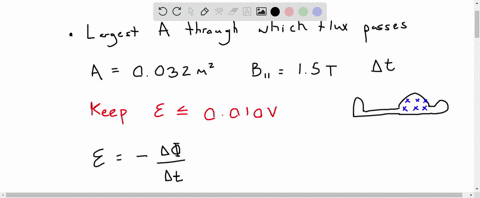 • Largest A through which flux passes
A = 0.032 m² B₁₁ = 1.5 T Δt
Keep ℰ ≤ 0.010V
ℰ = - ΔΦ / Δt